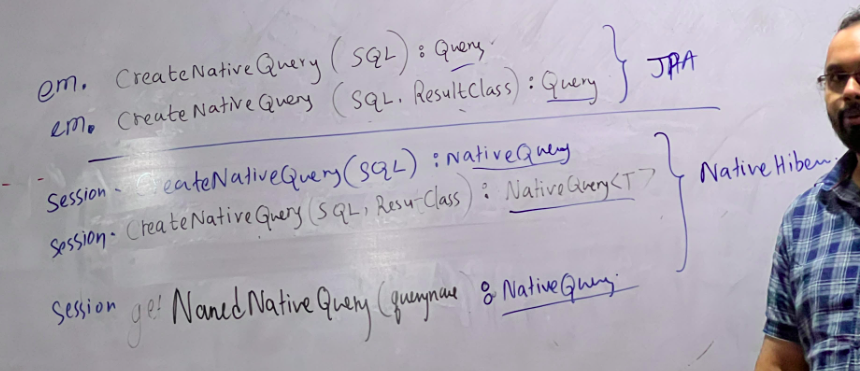 em. CreateNativeQuery (SQL) : Query
em. CreateNativeQuery (SQL, ResultClass) : Query } JPA
Session. CreateNativeQuery (SQL) : NativeQuery
Session. CreateNativeQuery (SQL, Resu-Class) : NativeQuery<T> } NativeHiber
Session get NamedNativeQuery (queryname) : NativeQuery